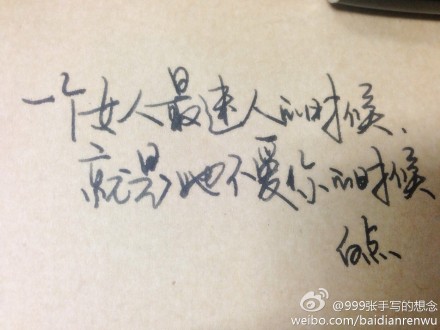 一个女人最迷人的时候、
就是她不爱你的时候
白点
@999张手写的想念
weibo.com/baidianrenwu